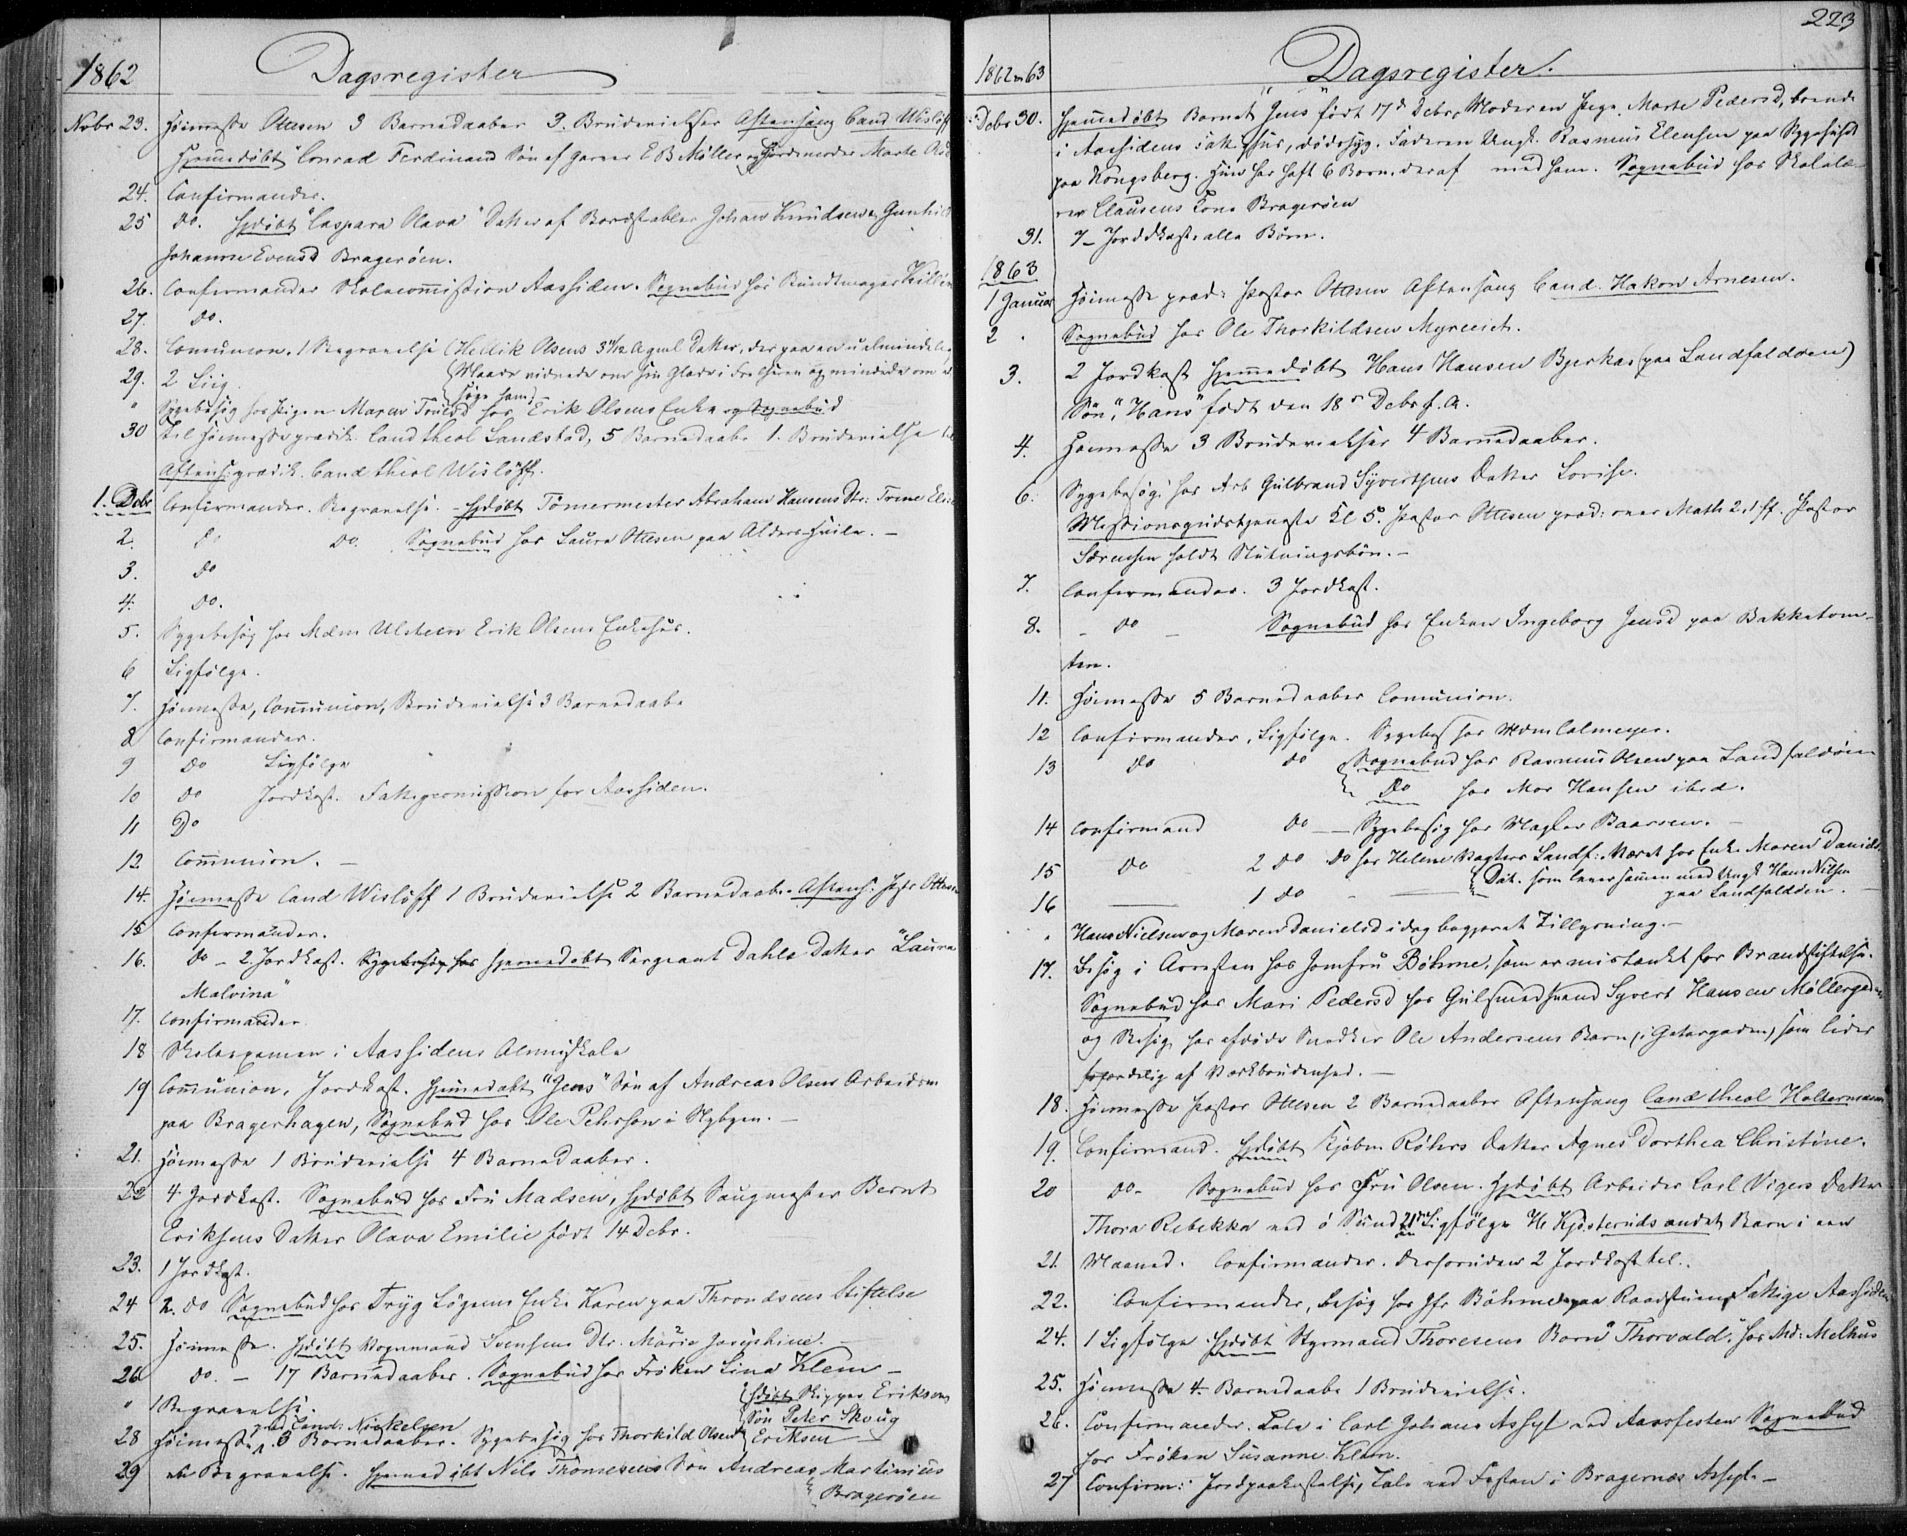 1862
Dagsregister
Novbr 23. Høimesse Ottesen 3 Barnedaaber 3. Brudevielser Aftensang Cand Wisløff
Hjemmedøbt "Conrad Ferdinand Søn af Garver E B Møller og Jordemoder Marte
24. Confirmander.
25 do. Hjdøbt "Caspara Olava" Datter af Bordstabler Johan Knudsen og Gunhild
Johanne Evensd Bragerøen.
26. Confirmander Skolecommission Aassiden. Sognebud hos Bundtmager
27. do.
28. Communion. 1 Begravelse (Hellik Olsens 3 1/12 Aar gml Datter, der paa en ualmindelig
29. 2 Liig. Maade vidnede om sin Glæde i Frelseren og mindede om at
søge ham)
" Sygebesøg hos Pigen Maren Truldsd hos Erik Olsens Enke og Sognebud
30 Til Høimesse prædik. Cand theol Landstad, 5 Barnedaabe 1. Brudevielse til
Aftens: prædik. Cand theol Wisløff.
1. Debr Confirmander. Begravelse. - Hjdøbt Tømermester Abraham Hansens Dtr: Trine
2. do do. Sognebud hos Laura Ottesen paa Alders Hvile. -
3. do
4. do.
5. Sygebesøg hos Mdm Ulsteen Erik Olsens Enkehus.
6 Ligfølge.
7. Høimesse, Communion, Brudevielse 3 Barnedaabe
8 Confirmander.
9 do Ligfølge
10 do Jordkast. Fattigcommission for Aassiden.
11 Do
12 Communion. -
14. Høimesse Cand Wisløff 1 Brudevielse 2 Barnedaabe. Aftens: Pastor Ottesen
15 Confirmander.
16. do - 2 Jordkast. Sygebesøg hos Hjemmedøbt Sergeant Dahls Datter "Laura
Malvina"
17. Confirmander
18 Skoleexamen i Aassidens Almuskole
19 Communion. Jordkast. Hjemmedøbt "Jens" Søn af Andreas Olsen Arbeidsm
paa Bragerhagen, Sognebud hos Ole Pehrson i Nybyen. -
21. Høimesse 1 Brudevielse 4 Barnedaaber.
22 4 Jordkast. Sognebud hos Fru Madsen, Hjdøbt Saugmester Bernt
Eriksens Datter Olava Emilie født 14 Debr.
23. 1 Jordkast.
24 2. do Sognebud hos Tryg Løgens Enke Karen paa Throndsens Stiftelse
25. Høimesse. Hjdøbt Vognmand Svensens Dtr. Marie Josephine. -
26 do. - 17 Barnedaaber. Sognebud hos Frøken Lina Klem -
" 1 Begravelse. Hjdøbt Skipper Eriksens
Søn Peter Skoug
28 Høimesse ved Cand: Nickelsen 3 Barnedaaber. Sygebesøg hos Thorkild Olsen Eriksen
29 Begravelse. Hjemmedøbt Nils Thomesens Søn Andreas Martinius
Bragerøen
223
1862 n 63
Dagsregister.
Debr 30. Hjemmedøbt Barnet "Jens" født 17de Debr, Moderen Pige Marte Pedersd, boende
i Aassidens Fattighus, dødssyg. Faderen Ungk. Rasmus Elensen paa Sygehuset
paa Kongsberg. Hun har havt 6 Børn, deraf med ham. Sognebud hos Skolelæ-
rer Clausens Kone Bragerøen
31. 7 Jordkast alle Børn.
1863
1 Januar Høimesse præd: Pastor Ottesen Aftensang Cand. Hakon Arnesen.
2 . Sognebud hos Ole Thorkildsen Myreeiet.
3. 2 Jordkast Hjemmedøbt Hans Hansen Bjerkas (paa Landfaldøen)
Søn, "Hans" født den 18de Debr f. A.
4. Høimesse 3 Brudevielser 4 Barnedaaber.
6. Sygebesøg: hos Arb Gulbrand Syvertsens Datter Lovise.
Missionsgudstjeneste Kl 5. Pastor Ottesen præd: over Math 2. 1 ff. Pastor
Sørensen holdt Slutningsbøn. -
7. Confirmander. 3 Jordkast.
8. - do - Sognebud hos Enken Ingeborg Jensd paa Bakketom-
ten.
11. Høimesse 5 Barnedaaber Communion.
12 Confirmander, Ligfølge. Sygebes. hos Mdm Calmeyer.
13 do do Sognebud hos Rasmus Olsen paa Landfaldøen
Do hos Mor Hansen ibid.
14 Confirmand do - Sygebesøg hos Baarsen. -
15 do 2 do do hos Helene Landf: Været hos Enke Maren Daniels-
Dat. som lever sammen med Ungk Hans Nilsen
16 - 1 do - paa Landfaldøen. -
" Hans Nielsen og Maren Danielsd idag begjæret Tillysning. -
17. Besøg i Arresten hos Jomfru Bøhme, som er mistænkt for Brandstiftelse.
Sognebud hos Mari Pedersd hos Gulsmedsvend Syvert Hansen Møllergaden
og Besøg hos afdøde Snedker Ole Andersens Barn (i Gjetergaden) som lider
forfærdelig af Værkbrudenhed. -
18. Høimesse Pastor Ottesen 2 Barnedaaber Aftensang Cand theol Haltermann
19. Confirmand. Hjdøbt Kjøbm Røhrs Datter Agnes Dorthea Christine.
20 do - Sognebud hos Fru Olsen. Hjdøbt Arbeider Carl Vigers Datter
Thora Rebekka ved ö Sund. 21de Ligfølge H. Kjøsteruds andet Barn i een
21. Maaned. Confirmander. desforuden 2 Jordkastel.
22. Confirmander, besøg hos Jfr Bøhme paa Raadstuen, Fattige Aassiden
24. 1 Ligfølge Hjdøbt Styrmand Thoresens Barn "Thorvald", hos Md: Melhus
25. Høimesse 4 Barnedaabe 1 Brudevielse.
26. Confirmander. Tale i Carl Johans Assyl ved Aarsfesten Sognebud
hos Frøken Susanne Klem.
27 Confirm: Jordpaakastelse, Tale ved Festen i Bragernæs Asyl. -